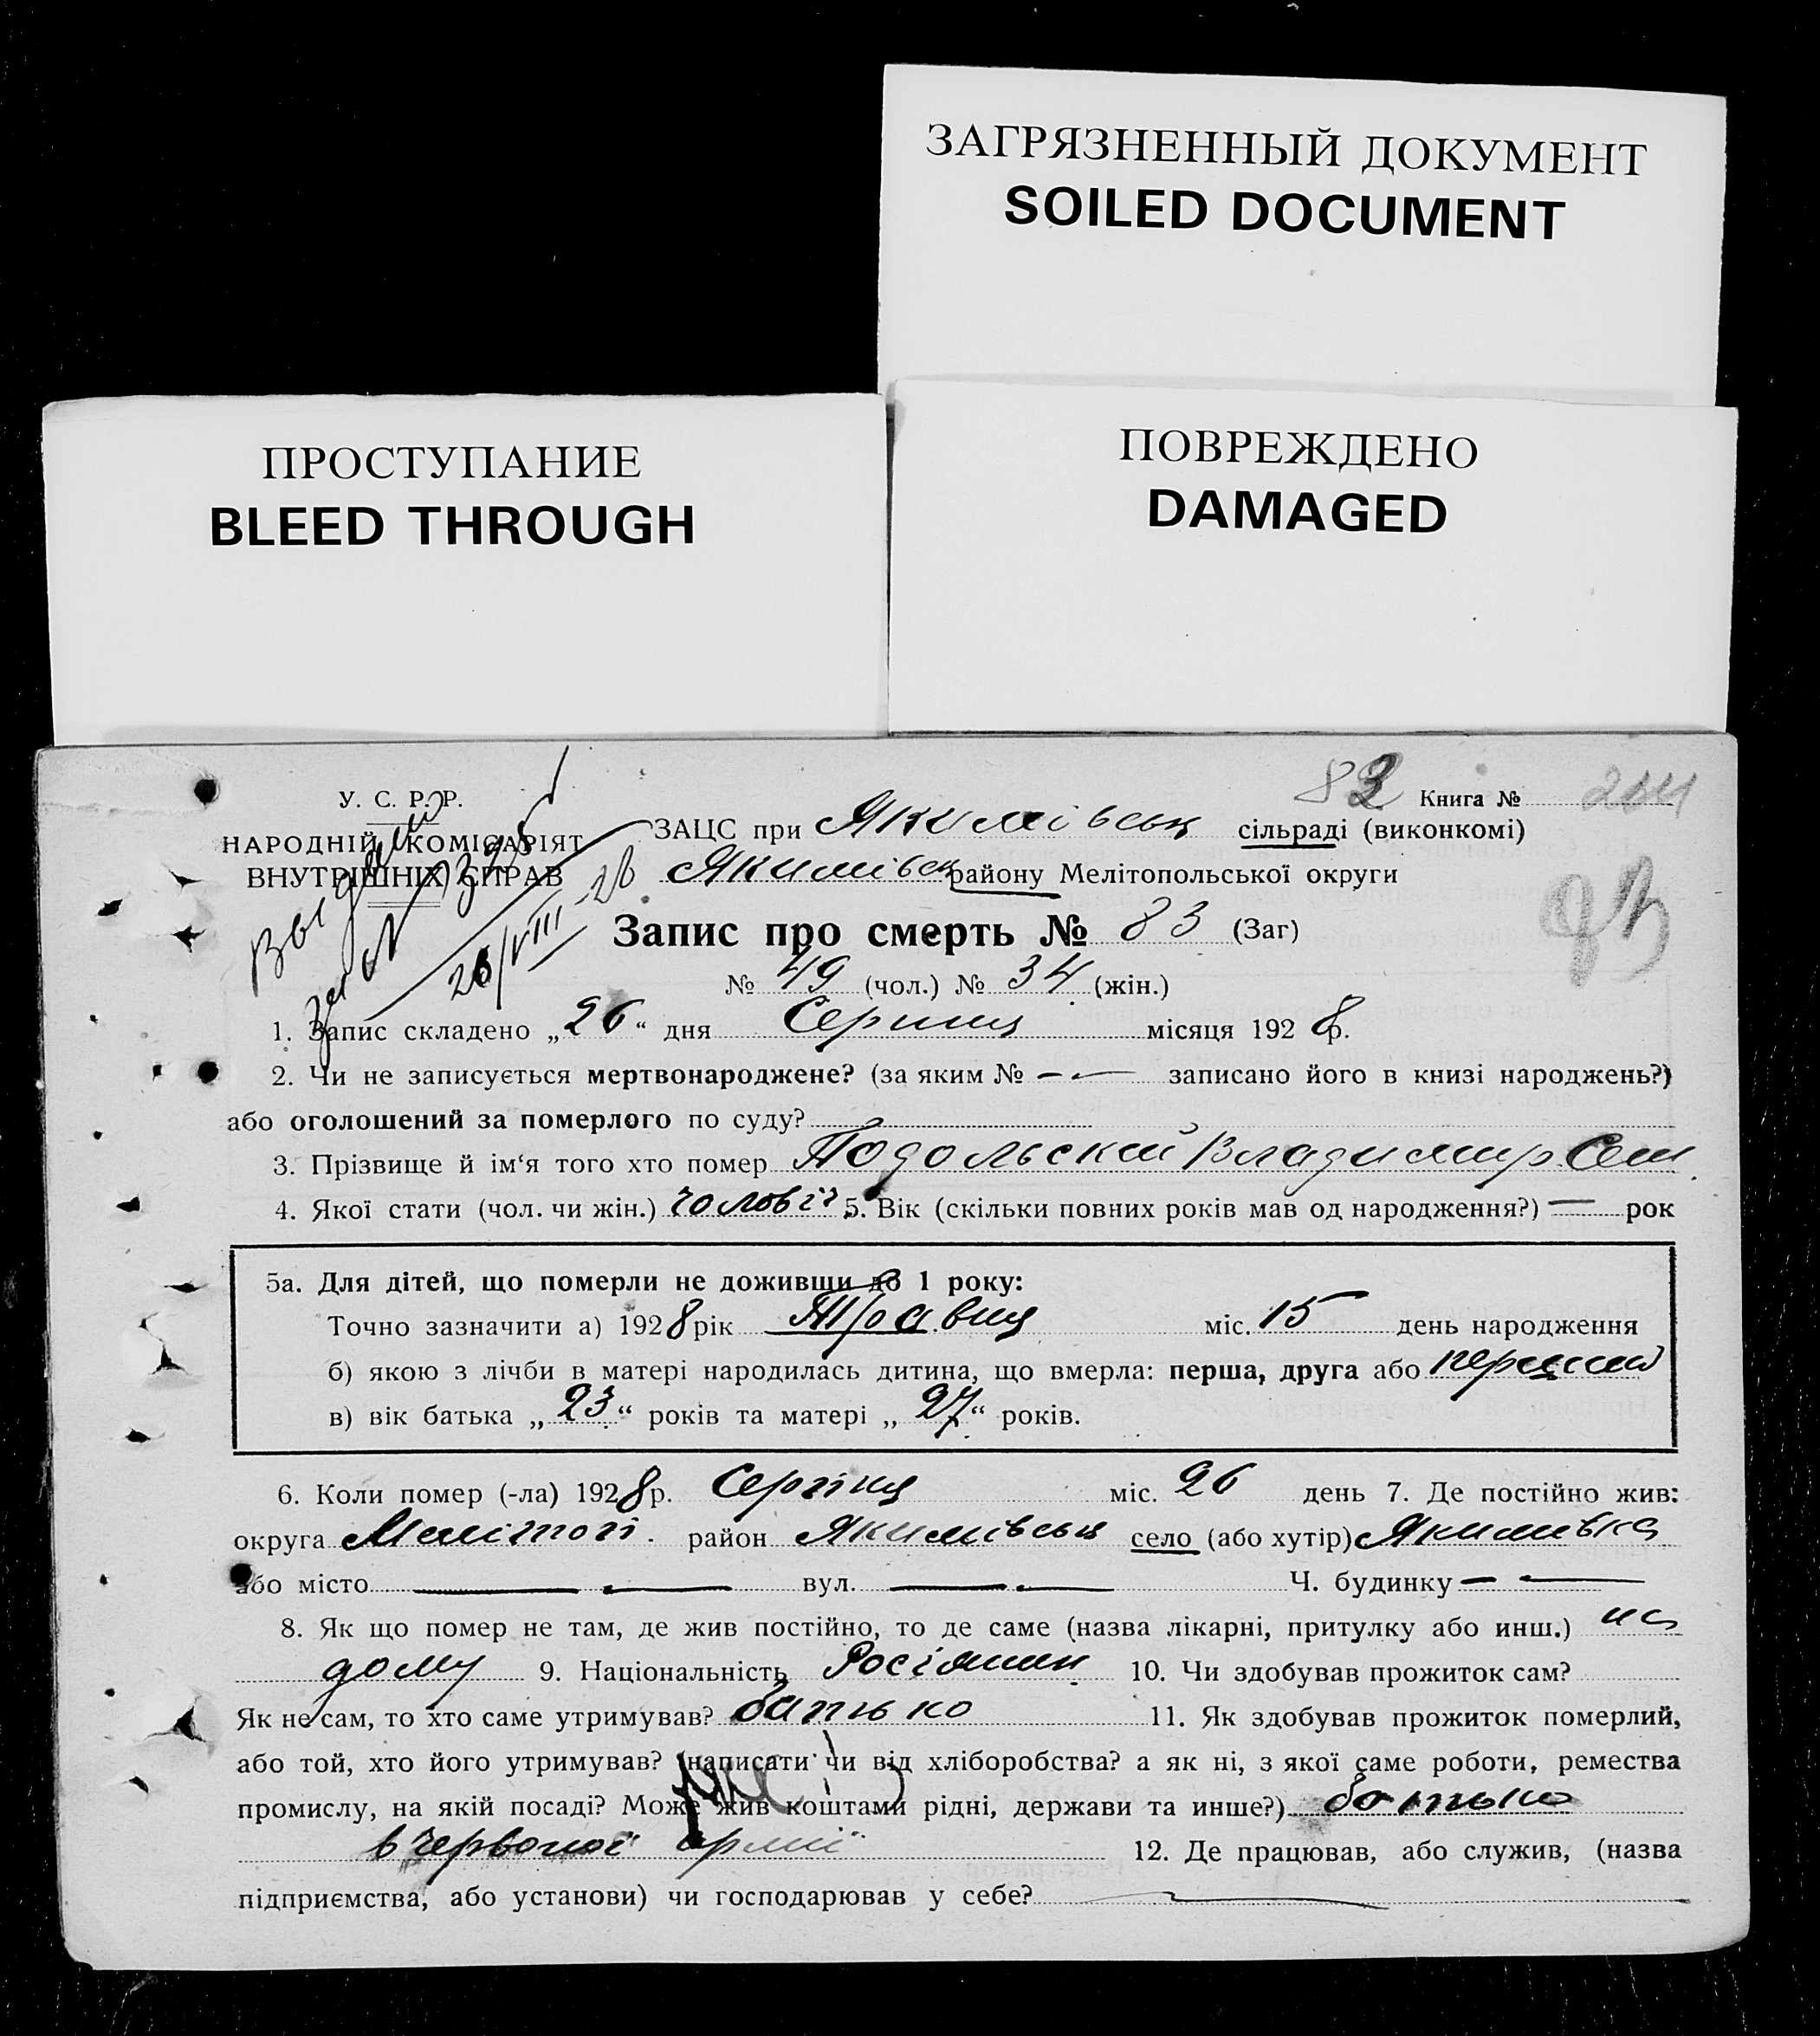 ЗАГРЯЗНЕННЫЙ ДОКУМЕНТ
SOILED DOCUMENT
ПРОСТУПАНИЕ
BLEED THROUGH
ПОВРЕЖДЕНО
DAMAGED
83 Книга №
У. С. Р. Р.
НАРОДНІЙ КОМІСАРІЯТ
ВНУТРІШНІХ СПРАВ
26/VIII-28
ЗАЦС при Якимівськ сільраді (виконкомі)
Якимівськ району Мелітопольської округи
Запис про смерть № 83 (Заг)
№ 49 (чол.) № 34 (жін.)
1. Запис складено „26“ дня Серпня місяця 1928 р.
2. Чи не записується мертвонароджене? (за яким № — — записано його в книзі народжень?)
або оголошений за померлого по суду?
3. Прізвище й ім‘я того хто помер Подольский Владимир Сем
4. Якої стати (чол. чи жін.) чоловіч 5. Вік (скільки повних років мав од народження?) — рок
5а. Для дітей, що померли не доживши до 1 року:
Точно зазначити а) 1928 рік Травня міс. 15 день народження
б) якою з лічби в матері народилась дитина, що вмерла: перша, друга або
в) вік батька „23“ років та матері „27“ років.
6. Коли помер (-ла) 1928 р. Серпня міс. 26 день 7. Де постійно жив:
округа Мелітоп. район Якимівськ село (або хутір) Якимівка
або місто — — вул. — — Ч. будинку — —
8. Як що помер не там, де жив постійно, то де саме (назва лікарні, притулку або инш.) на
дому 9. Національність Росіянин 10. Чи здобував прожиток сам?
Як не сам, то хто саме утримував? батько 11. Як здобував прожиток померлий,
або той, хто його утримував? (написати чи від хліборобства? а як ні, з якої саме роботи, ремества
промислу, на якій посаді? Може жив коштами рідні, держави та инше?) батько
в червоної армії 12. Де працював, або служив, (назва
підприємства, або установи) чи господарював у себе? —